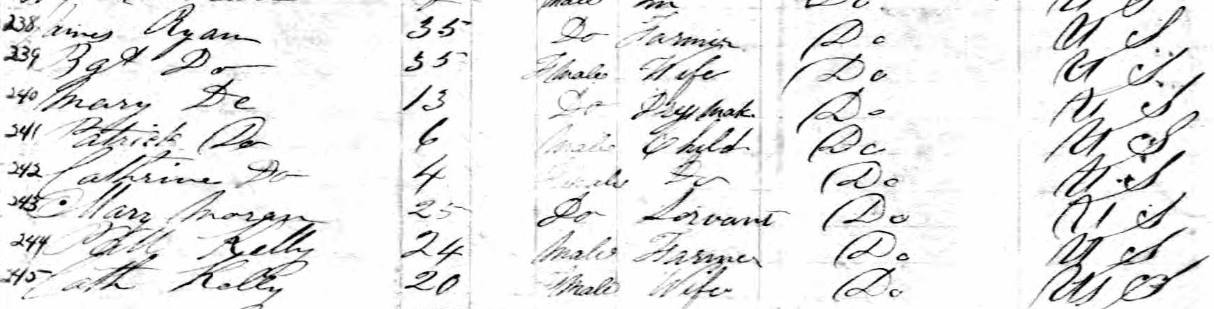 238 James Ryan 35 Do Farmer Do U S
239 Bgt Do 35 Female Wife Do U S
240 Mary Do 13 Do Do U S
241 Patrick Do 6 Male Child Do U S
242 Cathrine Do 4 Female Do Do U S
243 Mary Moran 25 Do Servant Do U S
244 Kelly 24 Male Farmer Do U S
245 Cath Kelly 20 Female Wife Do U S